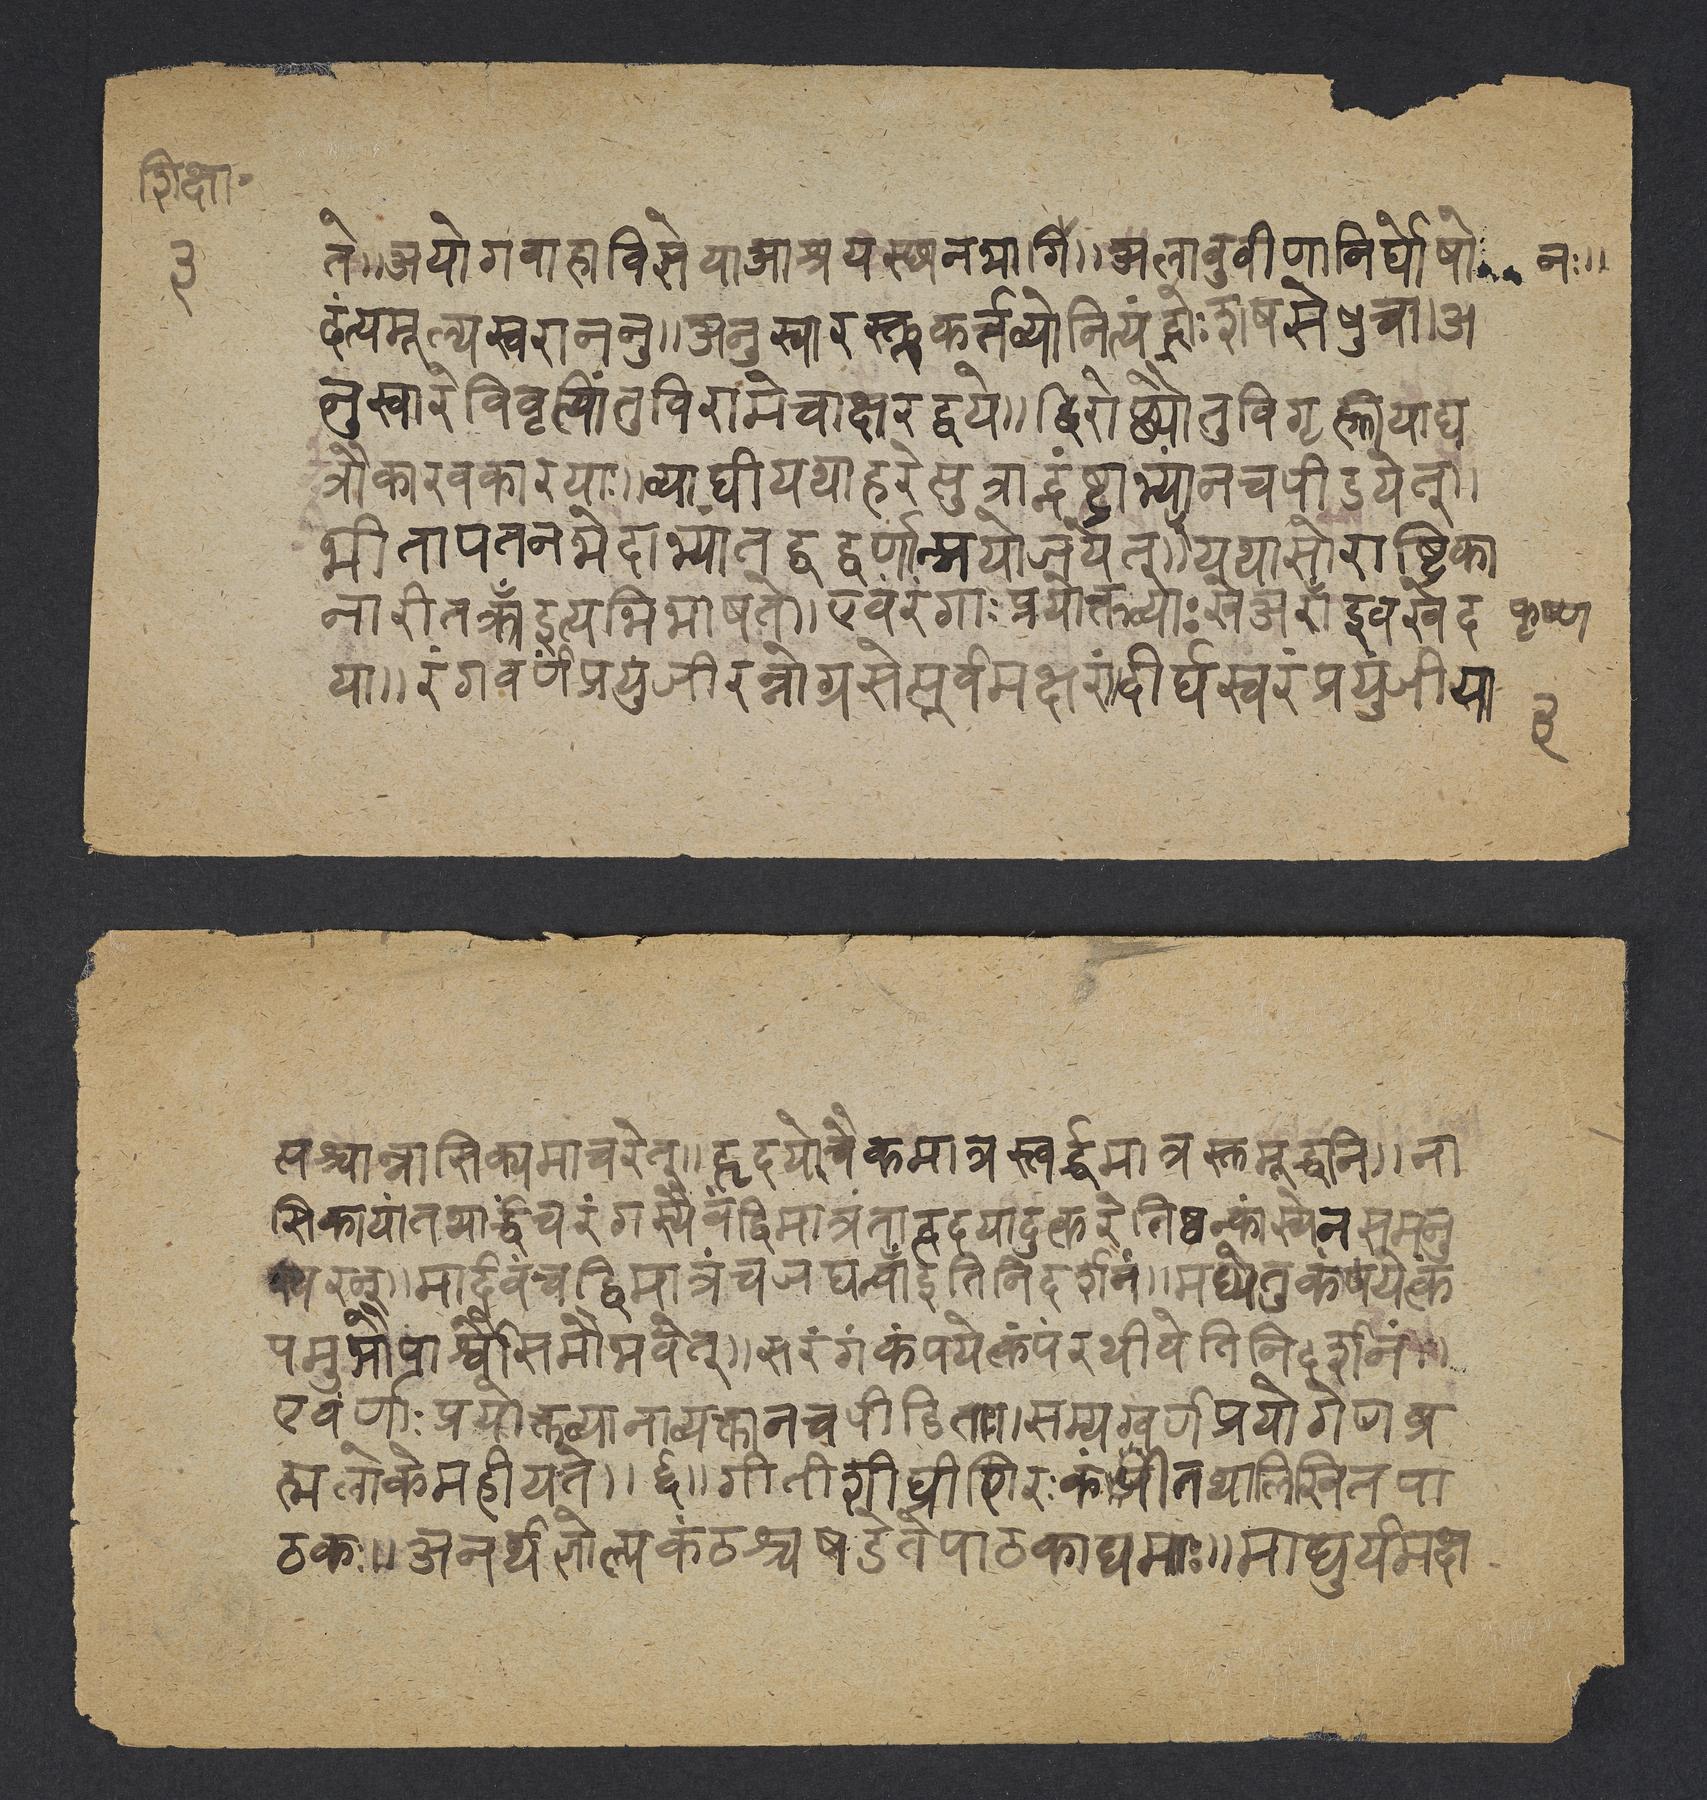 शिक्षा॰
३
ते॥अयोगवाहाविज्ञेयाआश्रयस्थानभागि॥अलाबुवीणानिर्घोषो नः॥
दंत्यमूल्यस्वराननु॥अनुस्वारस्तुकर्त्तव्योनित्यंह्रोःशषसेषुचा।अ
नुस्वारेविवृत्यांतुविरामेचाक्षरद्वये॥द्विरोष्ठ्यौतुविगृह्णीयाद्य
त्रौकारवकारयाः॥व्याघ्रीयथाहरेसुत्रान्दंष्ट्राभ्यांनचपीडयेत्॥
भीतापतनभेदाभ्यांतद्वद्वर्णान्प्रयोजयेत्॥यथासोराष्ट्रिका
नारीतक्राँइत्यभिभाषते।एवंरंगाःप्रयोक्तव्याःखेअराँइवखेद कृष्ण
या॥रंगवर्णंप्रयुंजीरन्नोग्रसेत्पूर्वमक्षरं।दीर्घस्वरंप्रयुंजीया
३
त्पश्चान्नासिक्यमाचरेत्॥हृदयेचैकमात्रस्त्वर्द्धमात्रस्तुमूर्द्धनि॥ना
सिकायांतथार्द्धंचरंगस्यैवंद्विमात्रंता।हृदयादुत्करेतिष्ठन्कांस्येनसमनु
स्वरन्॥मार्दवंचद्विमात्रंचजघन्वाँइतिनिदर्शनं॥मध्येतुकंपयेत्कं
पमुभौपार्श्वौसमौभवेत्॥सरंगंकंपयेत्कंपंरथीवेतिनिदर्शनं॥
एवंर्णाःप्रयोक्तव्यानाव्यक्तानचपीडिताः।सम्यग्वर्णप्रयोगेणब्र
ह्मलोकेमहीयते॥६॥गीतीशीघ्रीशिरःकंपीतथालिखितपा
ठकः॥अनर्थज्ञोल्पकंठश्चषडेतेपाठकाधमाः॥माधुर्यमक्ष